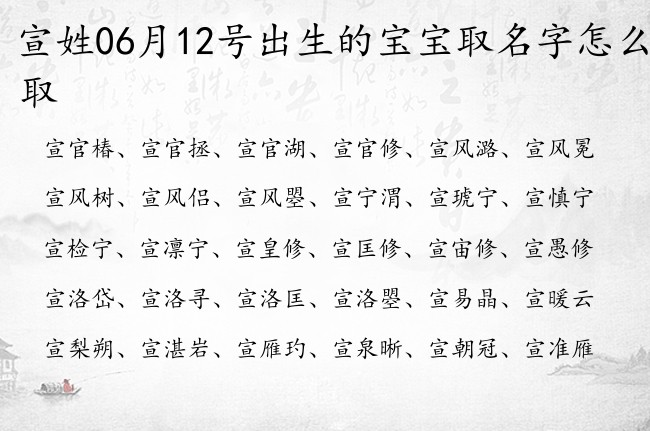 宣姓06月12号出生的宝宝取名字怎么
取
宣官椿、宣官拯、宣官湖、宣官修、宣风潞、宣风冕
宣风树、宣风侣、宣风曌、宣宁渭、宣琥宁、宣慎宁
宣检宁、宣凛宁、宣皇修、宣匡修、宣宙修、宣愚修
宣洛岱、宣洛寻、宣洛匡、宣洛曌、宣易晶、宣暖云
宣梨朔、宣湛岩、宣雁玓、宣泉晰、宣朝冠、宣准雁